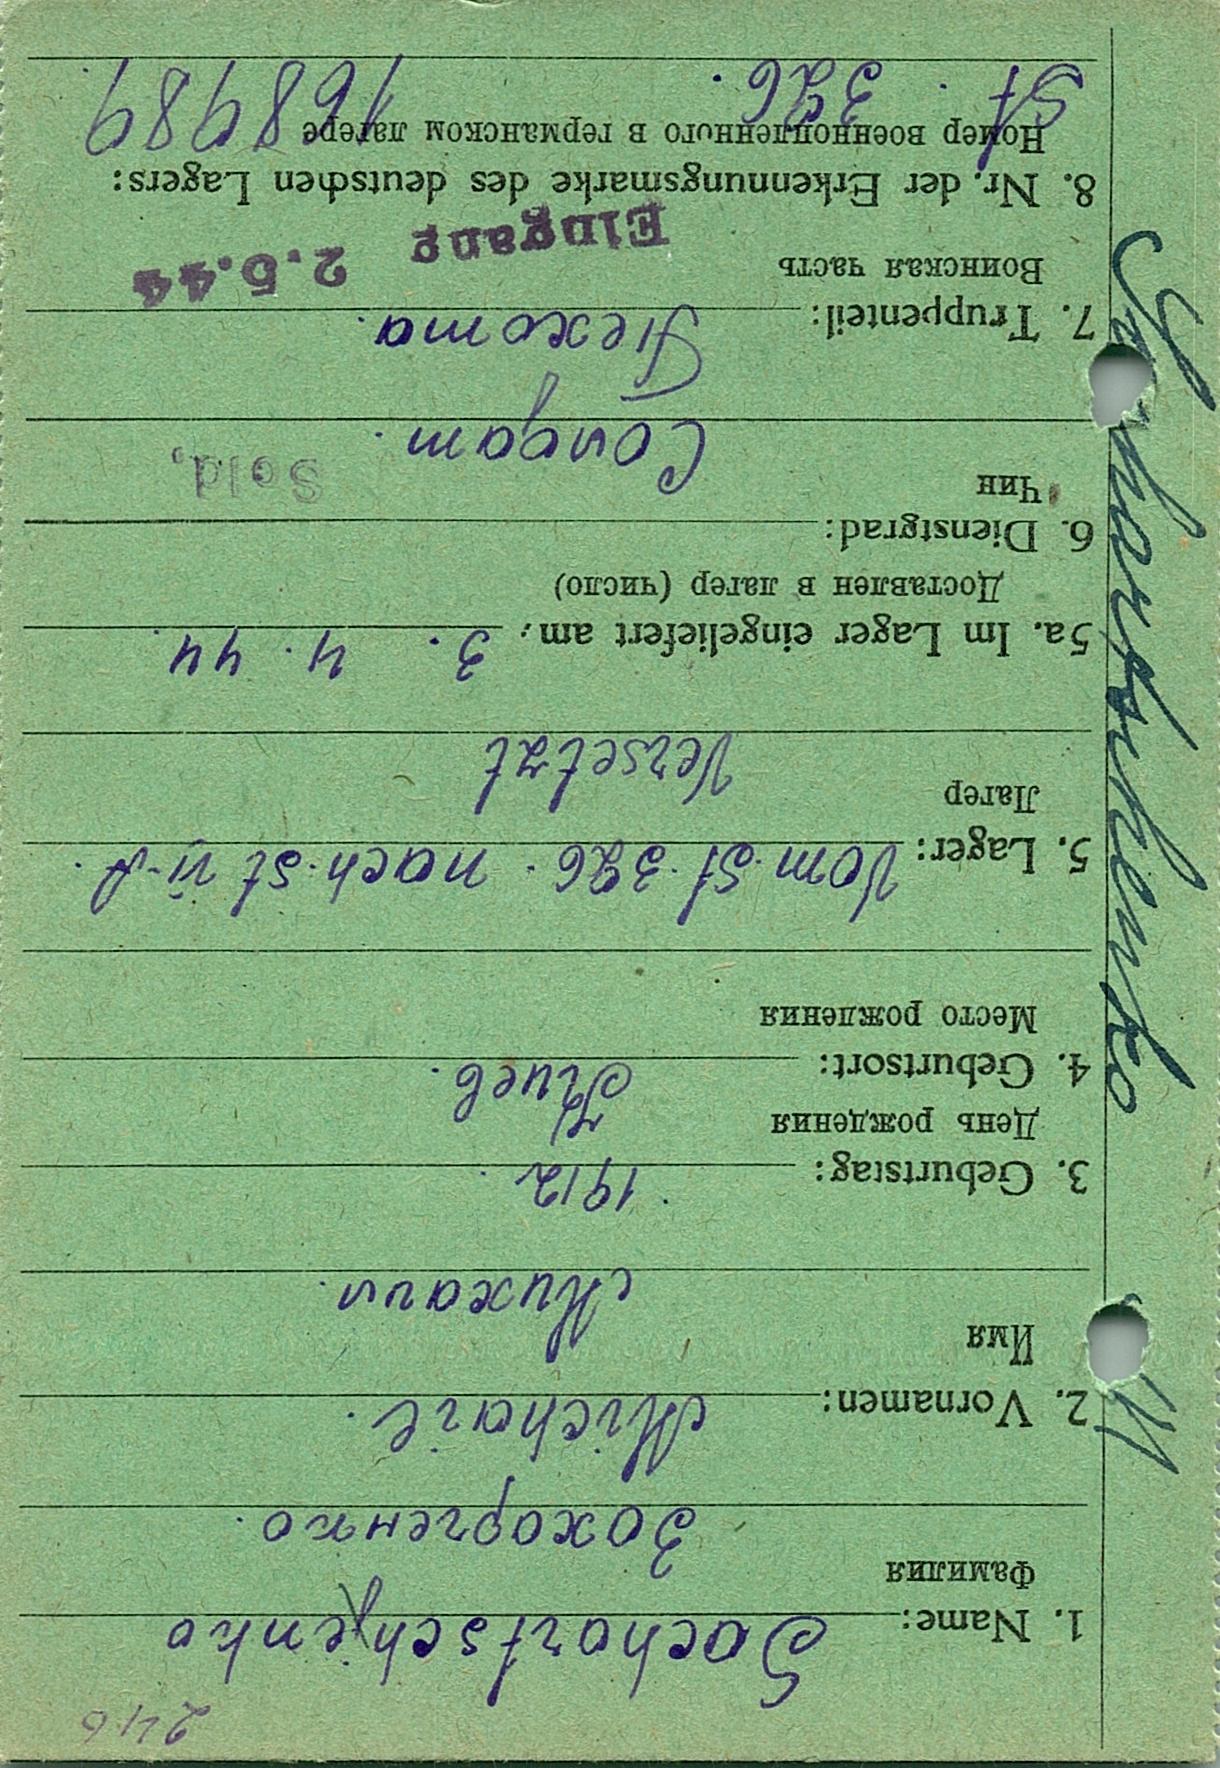 246
1. Name: Sachartschenko
Фамилия
Захарченко.
2. Vornamen: Michail.
Имя
Михаил.
3. Geburtstag: 1912.
День рождения
4. Geburtsort: Киев.
Место рождения
5. Lager: Vom. St. 326. nach. St VI-A.
Лагер
Versetzt
5a. Im Lager eingeliefert am: 3. 4. 44.
Доставлен в лагер (число)
6. Dienstgrad:
Чин
Солдат.
Sold.
7. Truppenteil: Пехота.
Воинская часть
Eingang 2.5.44
8. Nr. der Erkennungsmarke des deutschen Lagers:
Номер военнопленного в германском лагере
St. 326. 168989.
Sacharschenko